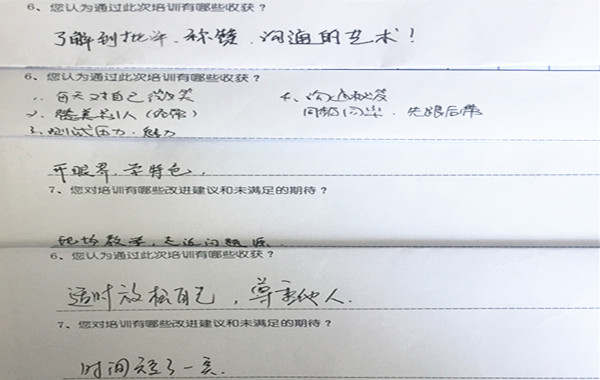 6、您认为通过此次培训有哪些收获？
了解到批评、称赞、沟通的艺术！
6、您认为通过此次培训有哪些收获？
1、每天对自己微笑 4、沟通
2、赞美别人（ ） 先跟后带
3、测试压力、魅力
开眼界，学特色。
7、您对培训有哪些改进建议和未满足的期待？
现场教学，走近问题源。
6、您认为通过此次培训有哪些收获？
适时放松自己，尊重他人.
7、您对培训有哪些改进建议和未满足的期待？
时间短了一点.